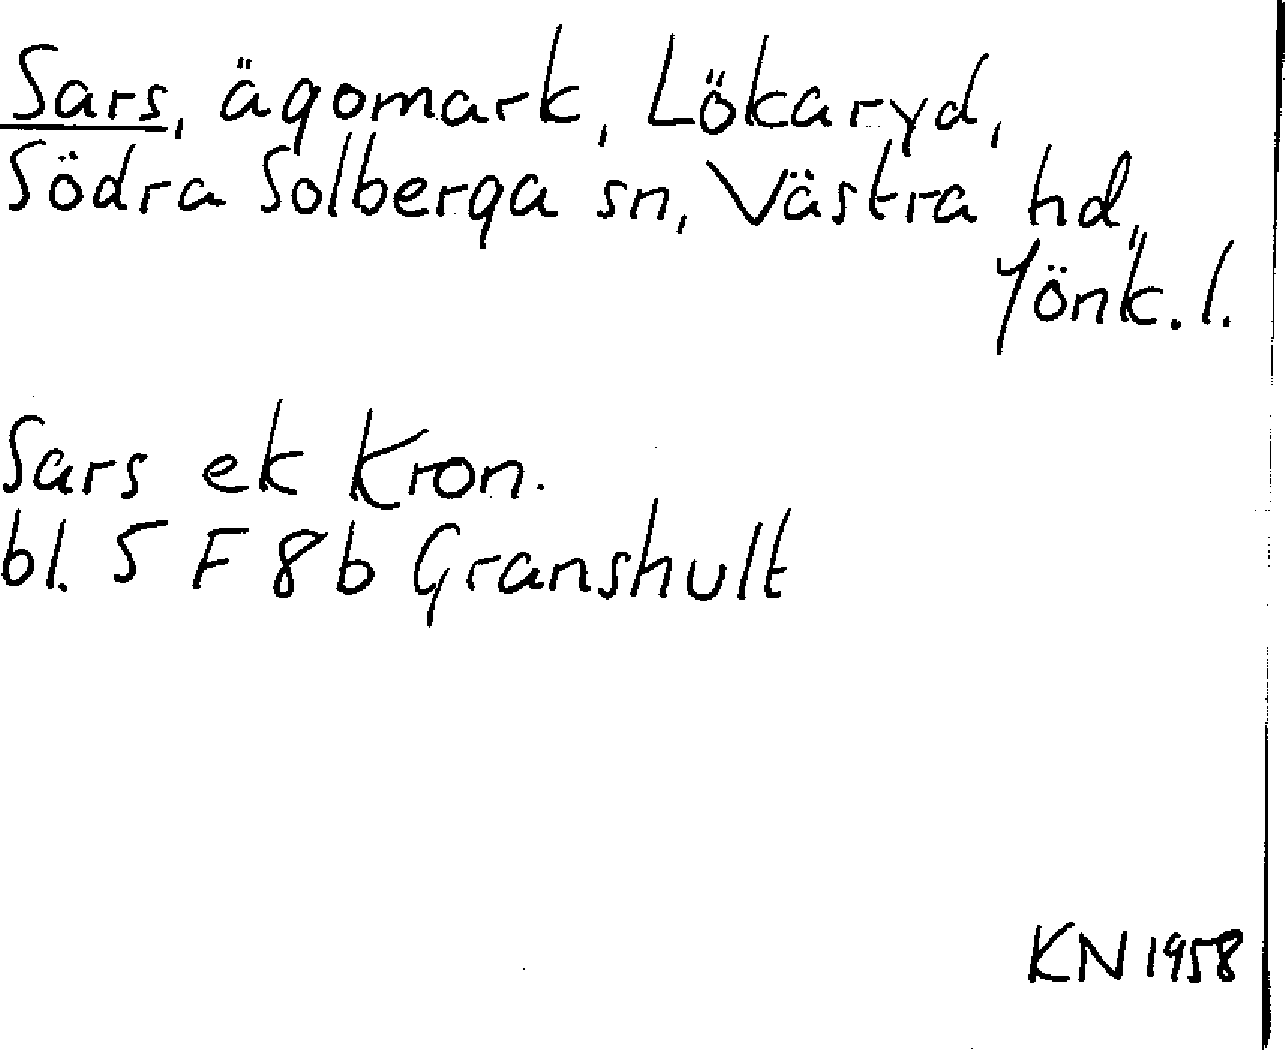 Sars, ägomark, Lökaryd,
Södra Solberga sn, Västra hd,
Jönk. l.
Sars ek Kron.
bl. 5 F 8 b Granshult
KN 1958